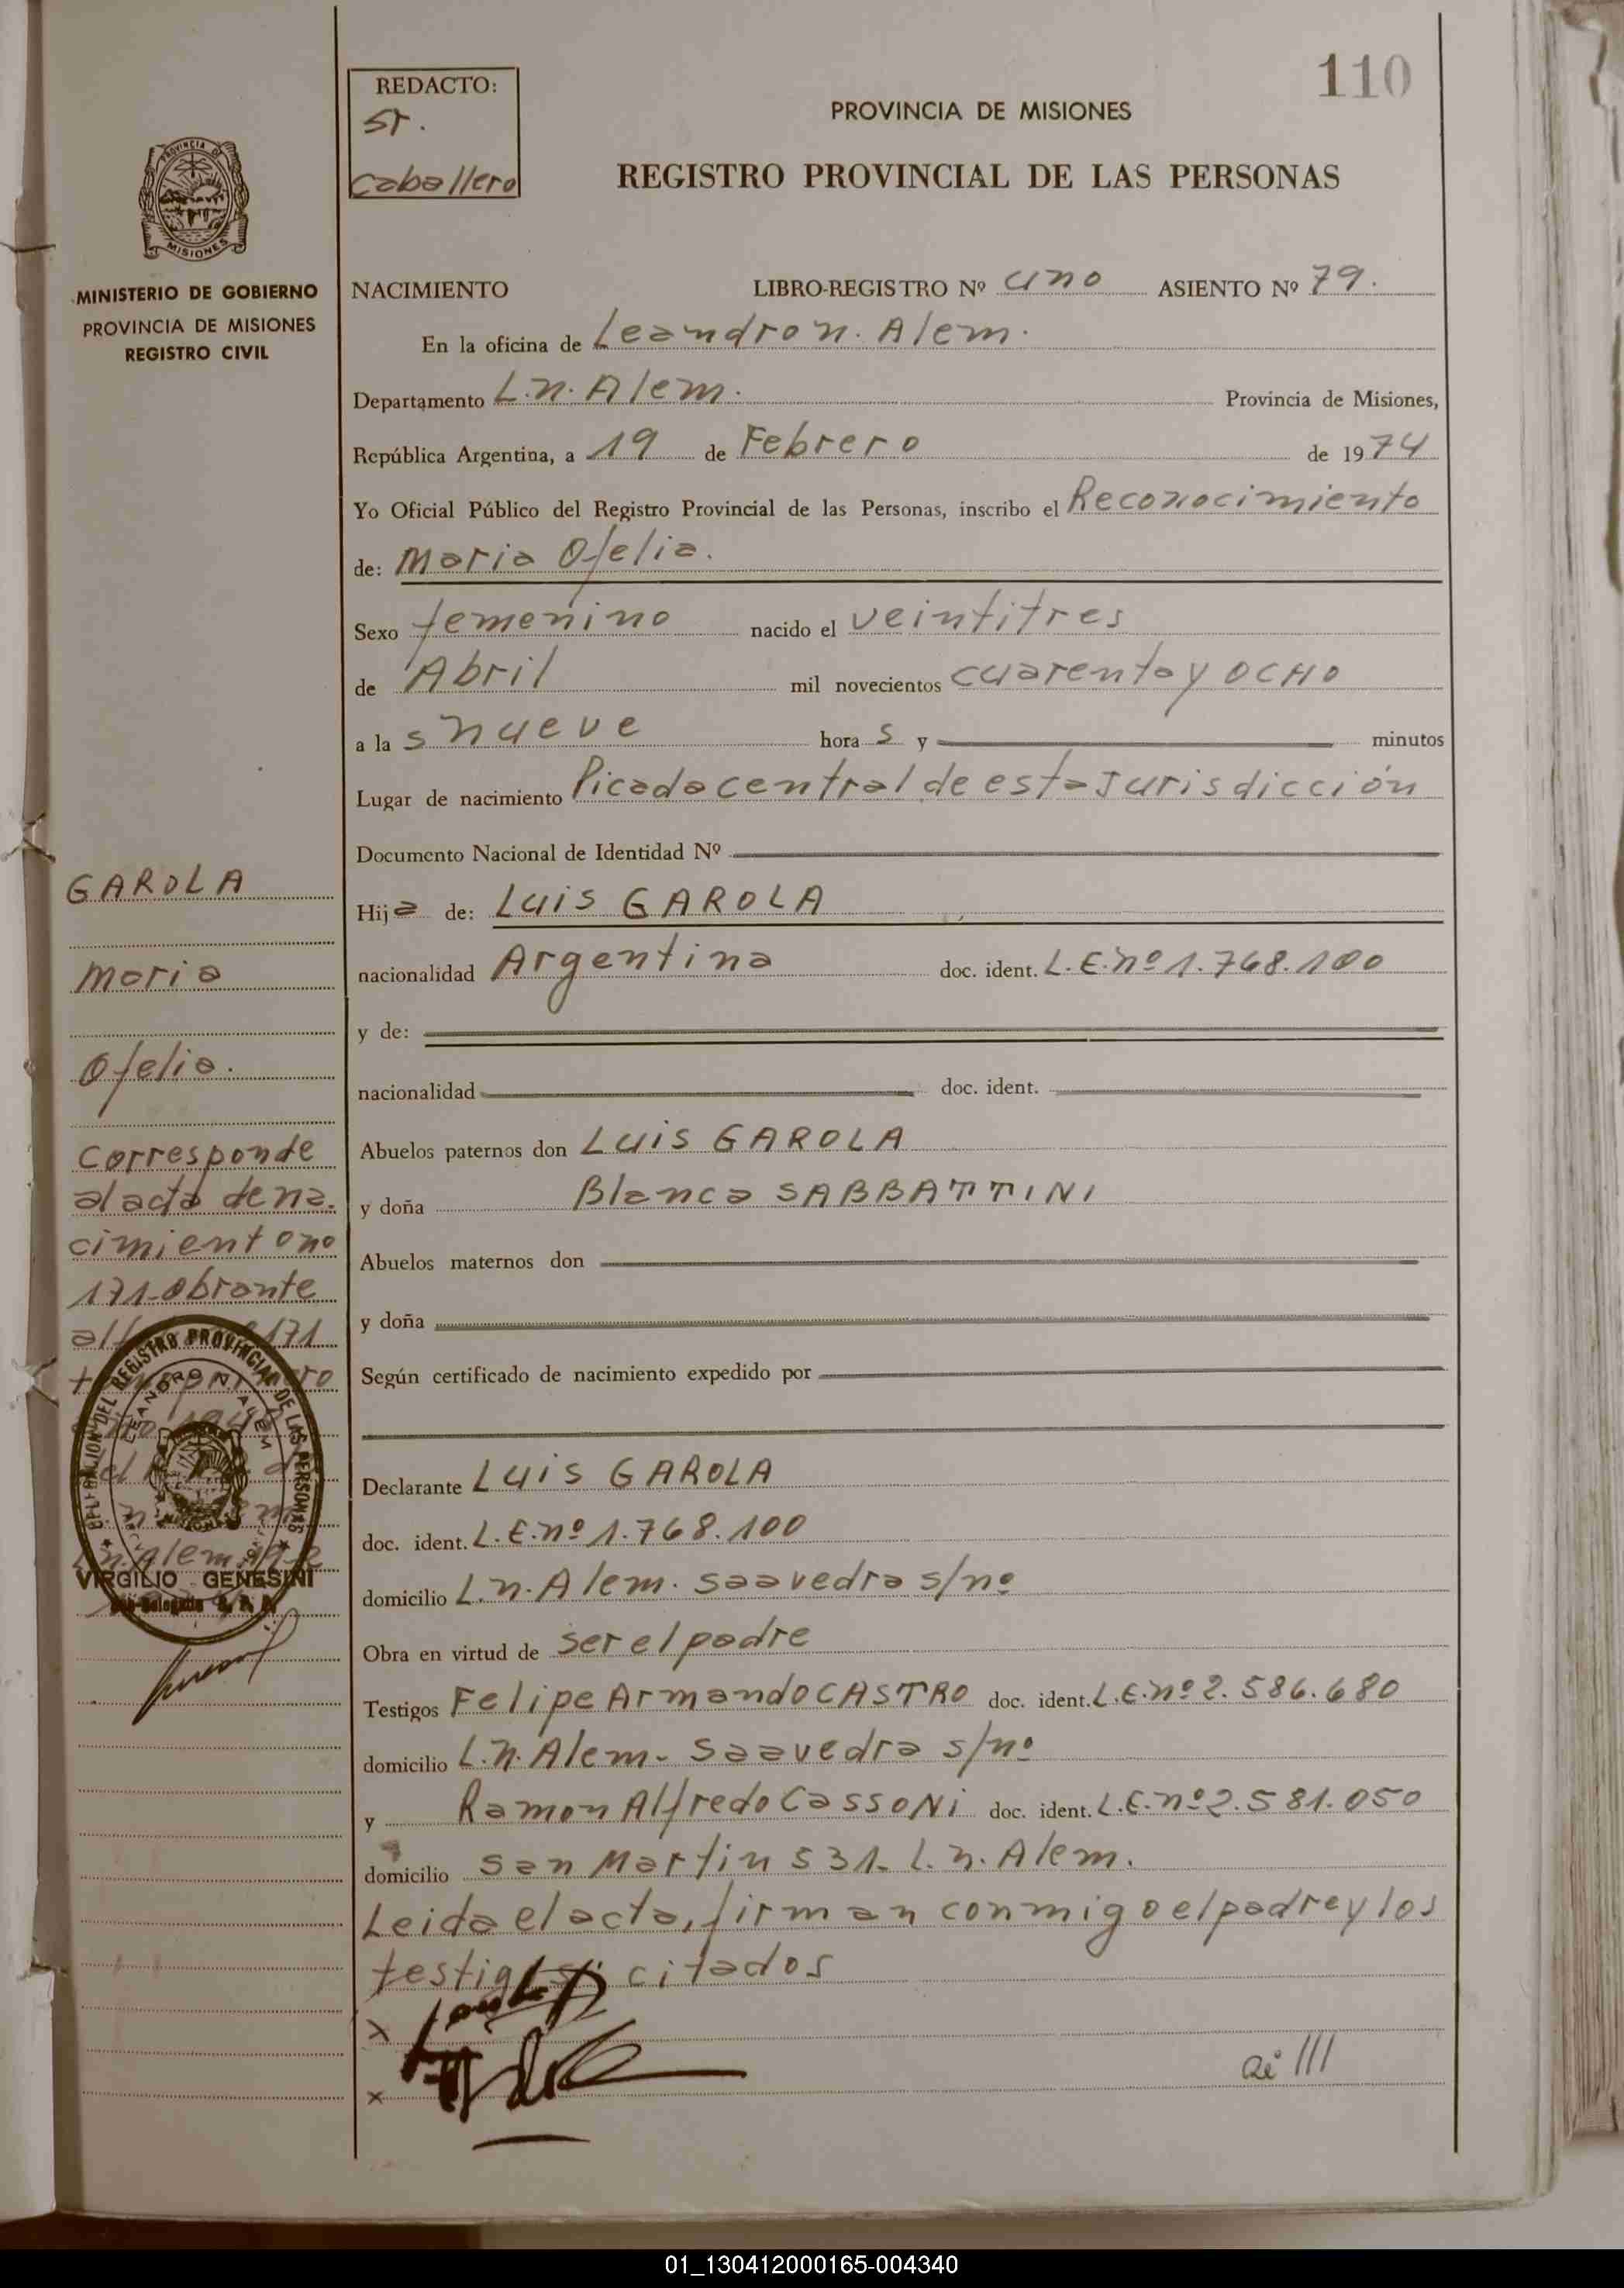 110
REDACTO:
Sr.
Caballero
PROVINCIA DE MISIONES
REGISTRO PROVINCIAL DE LAS PERSONAS
PROVINCIA DE
MISIONES
MINISTERIO DE GOBIERNO
PROVINCIA DE MISIONES
REGISTRO CIVIL
NACIMIENTO LIBRO-REGISTRO Nº uno ASIENTO Nº 79.
En la oficina de Leandro n. Alem.
Departamento L.n. Alem. Provincia de Misiones,
República Argentina, a 19 de Febrero de 1974
Yo Oficial Público del Registro Provincial de las Personas, inscribo el Reconocimiento
de: Maria Ofelia.
Sexo femenino nacido el veintitres
de Abril mil novecientos cuarenta y OCHO
a la s nueve hora s y minutos
Lugar de nacimiento Picada central de esta Jurisdicción
Documento Nacional de Identidad Nº
Hija de: Luis GAROLA
nacionalidad Argentina doc. ident. L.E.nº 1.768.100
y de:
nacionalidad doc. ident.
Abuelos paternos don Luis GAROLA
y doña Blanca SABBATTINI
Abuelos maternos don
y doña
Según certificado de nacimiento expedido por
Declarante Luis GAROLA
doc. ident. L.E.nº 1.768.100
domicilio L.n. Alem. Saavedra s/nº
Obra en virtud de ser el padre
Testigos Felipe Armando CASTRO doc. ident. L.E.nº 2.586.680
domicilio L.n. Alem. Saavedra s/nº
y Ramon Alfredo CassoNi doc. ident. L.E.nº 2.581.050
domicilio San Martin 531. L.n. Alem.
Leida el acta, firman conmigo el padre y los
testigos citados
x
x
ai///
GAROLA
Maria
Ofelia.
Corresponde
al acta de na.
cimiento nº
171-obrante
al 171
L.n. Alem
DEL REGISTRO PROVINCIAL DE LAS PERSONAS
LEANDRO N. ALEM
VIRGILIO GENESINI
01_130412000165-004340